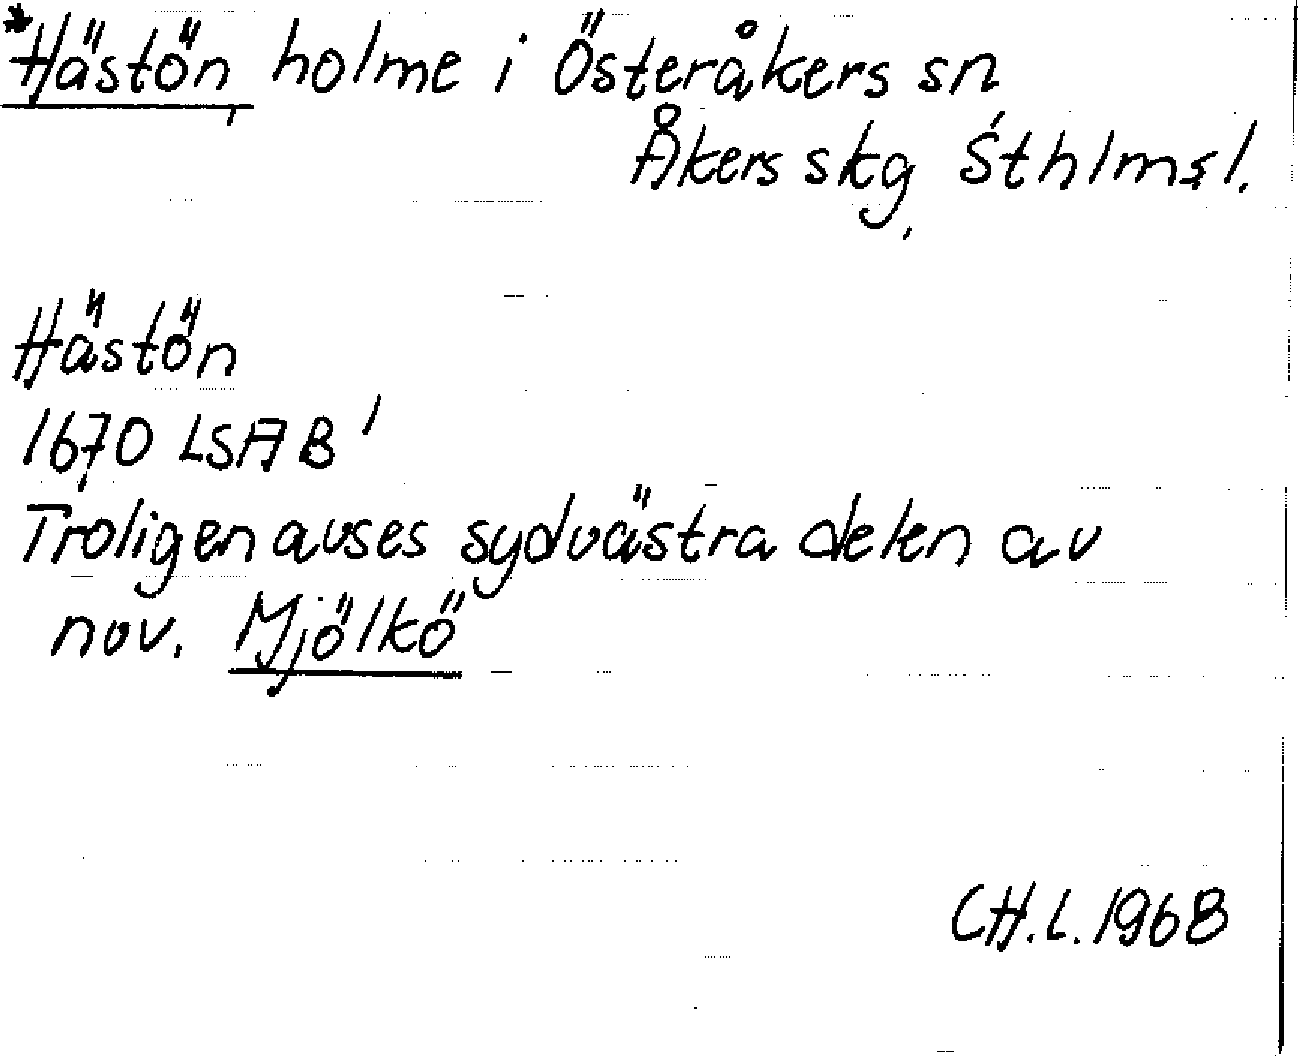 *Hästön, holme i Österåkers sn
Åkers skg, Sthlms l.
Hästön
1670 LSA B 1
Troligen avses sydvästra delen av
nov. Mjölkö
C.H.L. 1968